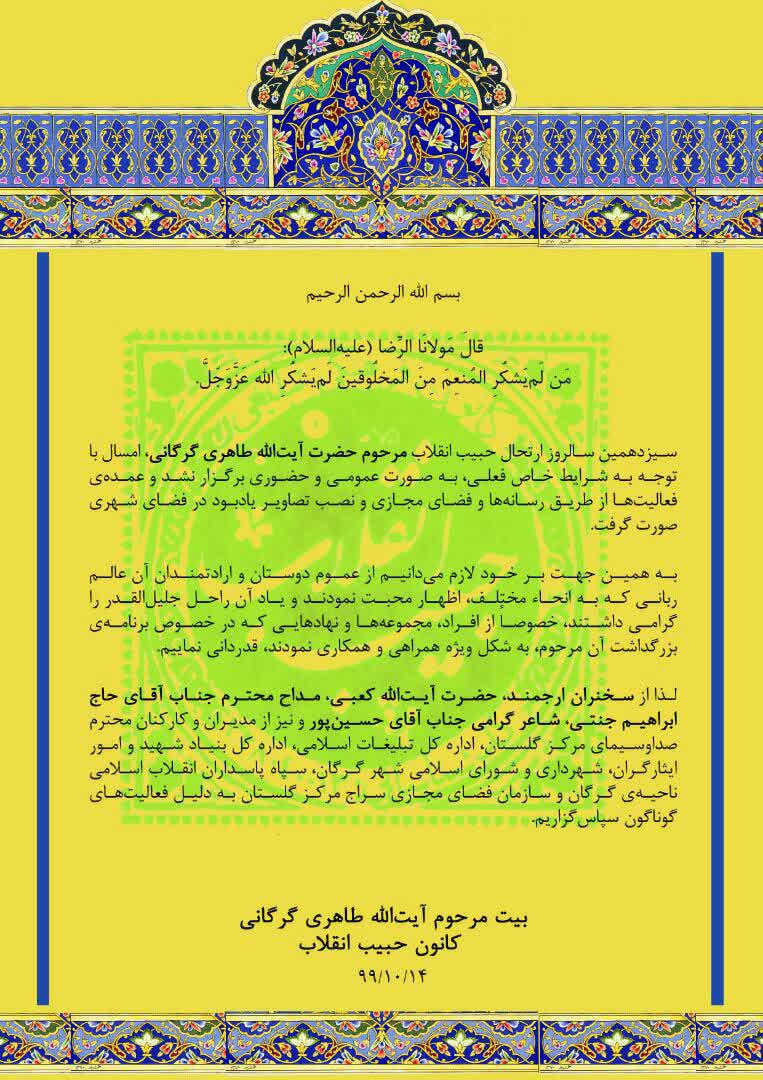 بسم الله الرحمن الرحیم
قالَ مَولانَا الرِّضا (علیه‌السلام):
مَن لَم‌یَشکُرِ المُنعِمَ مِنَ المَخلُوقینَ لَم‌یَشکُرِ اللهَ عَزَّوَجَلَّ.
سیزدهمین سالروز ارتحال حبیب انقلاب مرحوم حضرت آیت‌الله طاهری گرگانی، امسال با
توجه به شرایط خاص فعلی، به صورت عمومی و حضوری برگزار نشد و عمده‌ی
فعالیت‌ها از طریق رسانه‌ها و فضای مجازی و نصب تصاویر یادبود در فضای شهری
صورت گرفت.
به همین جهت بر خود لازم می‌دانیم از عموم دوستان و ارادتمندان آن عالم
ربانی که به انحاء مختلف، اظهار محبت نمودند و یاد آن راحل جلیل‌القدر را
گرامی داشتند، خصوصاً از افراد، مجموعه‌ها و نهادهایی که در خصوص برنامه‌ی
بزرگداشت آن مرحوم، به شکل ویژه همراهی و همکاری نمودند، قدردانی نماییم.
لذا از سخنران ارجمند، حضرت آیت‌الله کعبی، مداح محترم جناب آقای حاج
ابراهیم جنتی، شاعر گرامی جناب آقای حسین‌پور و نیز از مدیران و کارکنان محترم
صداوسیمای مرکز گلستان، اداره کل تبلیغات اسلامی، اداره کل بنیاد شهید و امور
ایثارگران، شهرداری و شورای اسلامی شهر گرگان، سپاه پاسداران انقلاب اسلامی
ناحیه‌ی گرگان و سازمان فضای مجازی سراج مرکز گلستان به دلیل فعالیت‌های
گوناگون سپاس‌گزاریم.
بیت مرحوم آیت‌الله طاهری گرگانی
کانون حبیب انقلاب
۹۹/۱۰/۱۴